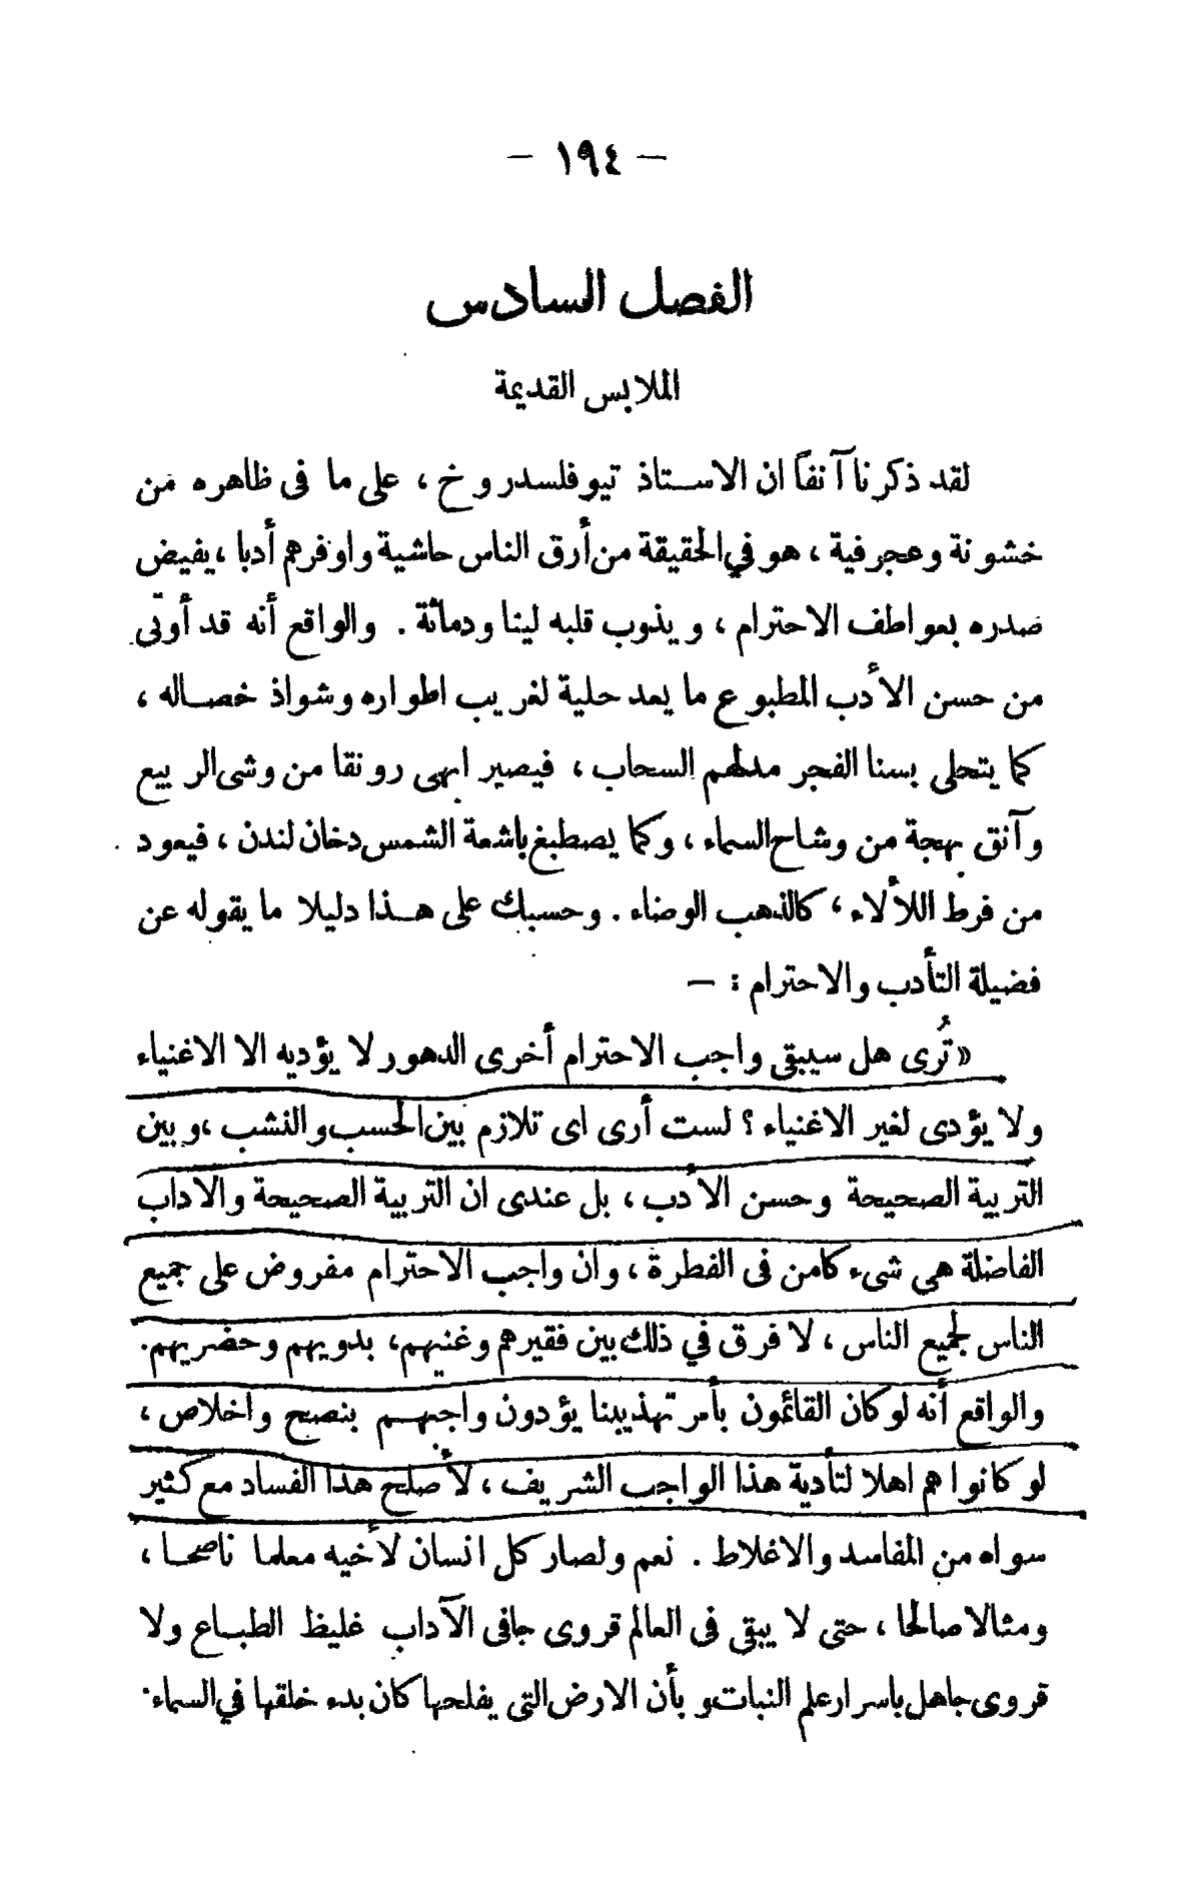 — ١٩٤ —
الفصل السادس
الملابس القديمة
لقد ذكرنا آنفاً ان الاستاذ تيوفلسدروخ ، على ما فى ظاهره من
خشونة وعجرفية ، هو في الحقيقة من أرق الناس حاشية واوفرهم أدبا ، يفيض
صدره بعواطف الاحترام ، ويذوب قلبه لينا ودماثة . والواقع أنه قد أوتى
من حسن الأدب المطبوع ما يعد حلية لغريب اطواره وشواذ خصاله ،
كما يتحلى بسنا الفجر مدلهم السحاب ، فيصير ابهى رونقا من وشى الربيع
وآنق بهجة من وشاح السماء ، وكما يصطبغ باشعة الشمس دخان لندن ، فيعود
من فرط اللألاء ، كالذهب الوضاء . وحسبك على هذا دليلا ما يقوله عن
فضيلة التأدب والاحترام : —
« تُرى هل سيبقى واجب الاحترام أخرى الدهور لا يؤديه الا الاغنياء
ولا يؤدى لغير الاغنياء ؟ لست أرى اى تلازم بين الحسب والنشب ، وبين
التربية الصحيحة وحسن الأدب ، بل عندى ان التربية الصحيحة والاداب
الفاضلة هى شىء كامن فى الفطرة ، وان واجب الاحترام مفروض على جميع
الناس لجميع الناس ، لا فرق في ذلك بين فقيرهم وغنيهم ، بدويهم وحضريهم .
والواقع أنه لو كان القائمون بأمر تهذيبنا يؤدون واجبهم بنصح واخلاص ،
لو كانوا هم اهلا لتأدية هذا الواجب الشريف ، لأصلح هذا الفساد مع كثير
سواه من المفاسد والاغلاط . نعم ولصار كل انسان لأخيه معلما ناصحا ،
ومثالا صالحا ، حتى لا يبقى فى العالم قروى جافى الآداب غليظ الطباع ولا
قروى جاهل باسرار علم النبات وبأن الارض التى يفلحها كان بدء خلقها في السماء .